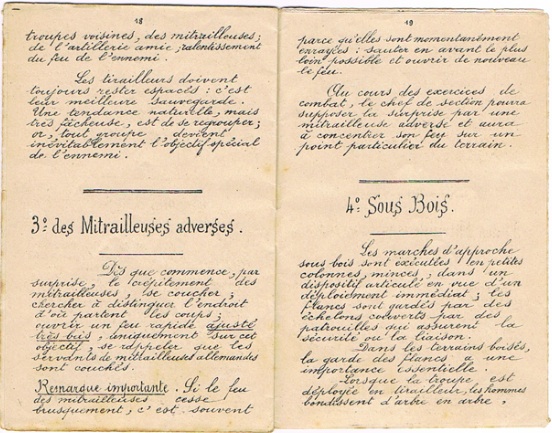 18
troupes voisines, des mitrailleuses;
de l'artillerie amie; ralentissement
du feu de l'ennemi.
Les tirailleurs doivent
toujours rester espacés : c'est
leur meilleure sauvegarde.
Une tendance naturelle, mais
très fâcheuse, est de se regrouper;
or, tout groupe devient
inévitablement l'objectif spécial
de l'ennemi.
3º des Mitrailleuses adverses.
Dès que commence, par
surprise, le crépitement des
mitrailleuses, se coucher;
chercher à distinguer l'endroit
d'où partent les coups;
ouvrir un feu rapide ajusté
très bas, uniquement sur cet
objectif, se rappeler que les
servants de mitrailleuses allemandes
sont couchés.
Remarque importante. Si le feu
des mitrailleuses cesse
brusquement, c'est souvent
19
parce qu'elles sont momentanément
enrayées : sauter en avant le plus
loin possible et ouvrir de nouveau
le feu.
Au cours des exercices de
combat, le chef de section pourra
supposer la surprise par une
mitrailleuse adverse et aura
à concentrer son feu sur un
point particulier du terrain.
4º Sous Bois.
Les marches d'approche
sous bois sont exécutées en petites
colonnes, minces, dans un
dispositif articulé en vue d'un
déploiement immédiat; les
flancs sont gardés par des
échelons couverts par des
patrouilles qui assurent la
sécurité ou la liaison.
Dans les terrains boisés,
la garde des flancs a une
importance essentielle.
Lorsque la troupe est
déployée en tirailleur, les hommes
bondissent d'arbre en arbre,